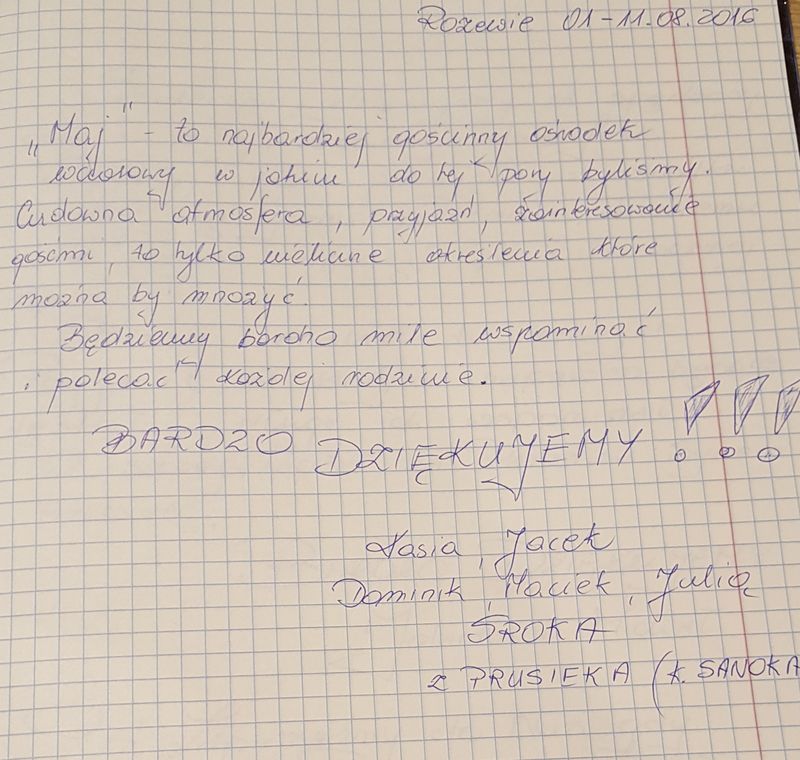 Rozewie 01-11.08.2016
„Maj" - to najbardziej gościnny ośrodek
wczasowy w jakim do tej pory byliśmy.
Cudowna atmosfera, przyjaźń, zainteresowanie
gośćmi, to tylko nieliczne określenia które
można by mnożyć.
Będziemy bardzo mile wspominać
i polecać każdej rodzinie.
BARDZO DZIĘKUJEMY !!!
Kasia, Jacek
Dominik, Maciek, Julia
SROKA
z PRUSIEKA (k. SANOKA